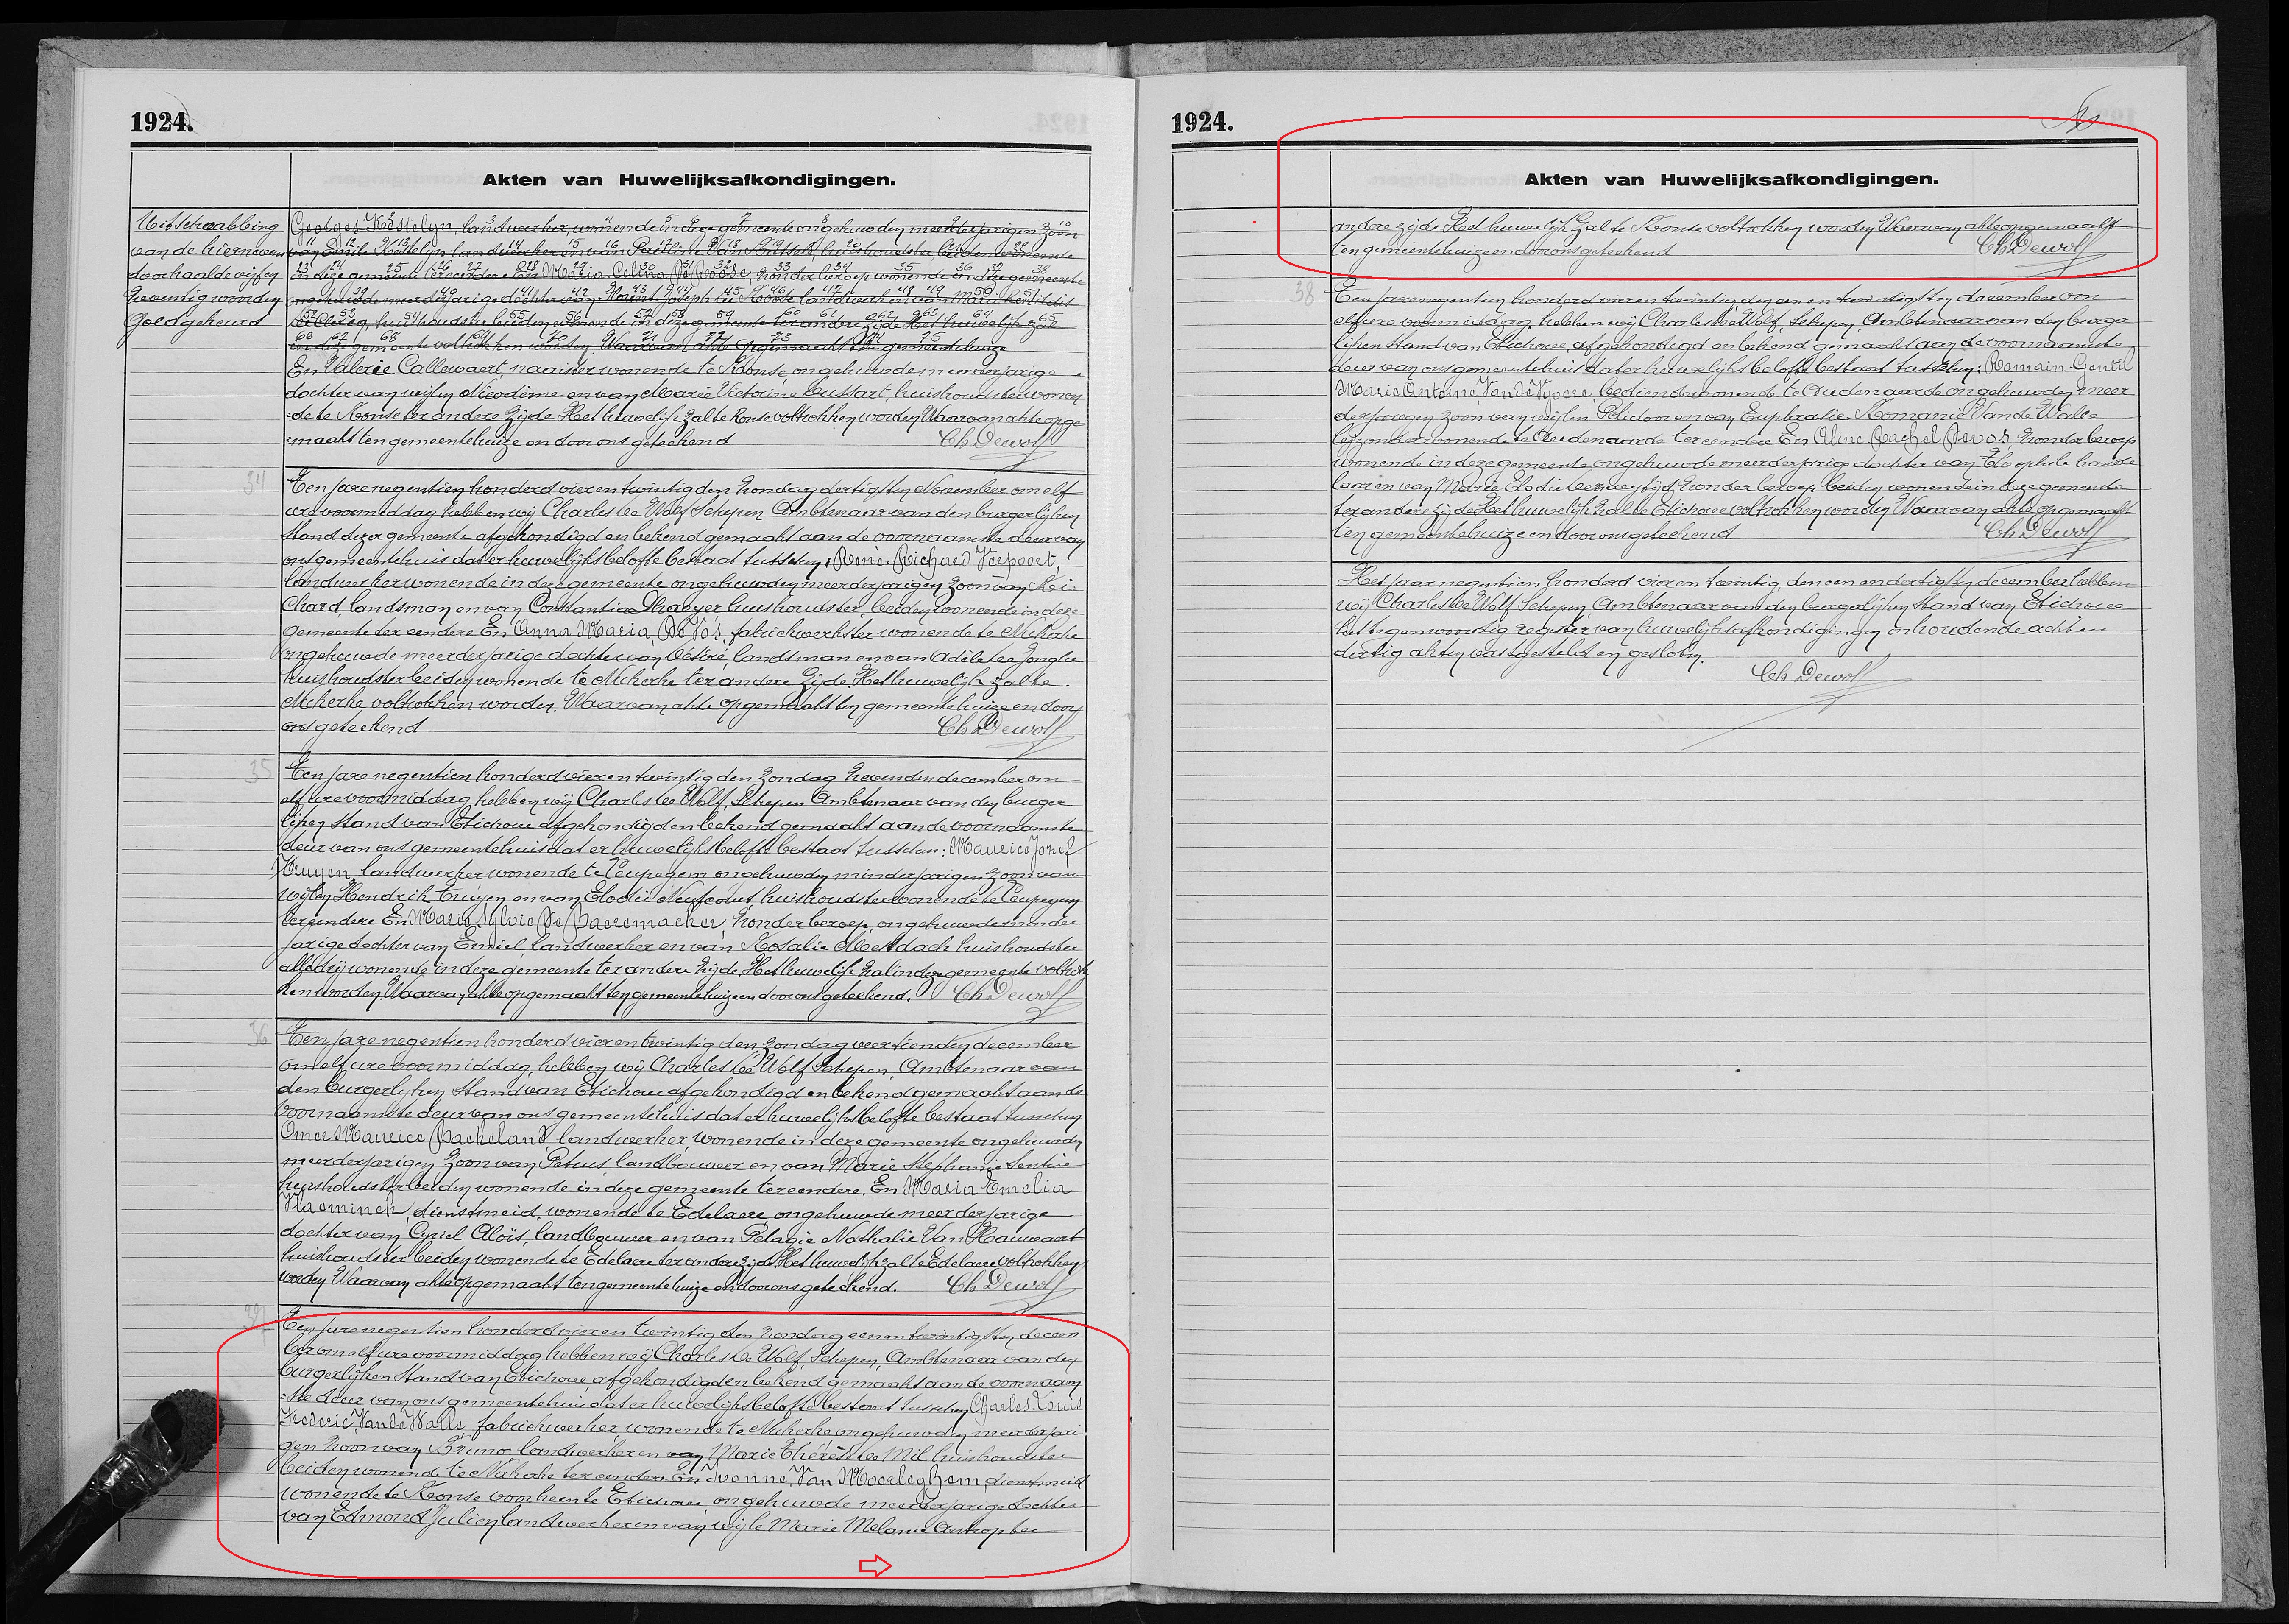 1924.
Akten van Huwelijksafkondigingen.
Uitschrabbing
van de hiernevens
doorhaalde vijf en
zeventig woorden
Goedgekeurd
Georges Kestelyn, landwerker, wonende in deze gemeente ongehuwden meerderjarigen zoon
van Emile Kestelyn landwerker en van Pauline Van huishoudster beiden wonende
in deze gemeente tereendere En Maria Celina De Roose, zonder beroep wonende in deze gemeente
ongehuwde meerderjarige dochter van Florent Joseph De Roose landwerker en van Marie
De Clercq, huishoudster beiden wonende in deze gemeente ter andere zijde Het huwelijk zal
in deze gemeente voltrokken worden. Waarvan akte Opgemaakt ten gemeentehuize
En Valerie Callewaert, naaister wonende te Ronse ongehuwde meerderjarige
dochter van wijlen Nicodème en van Marie Victorine Cussart, huishoudster wonen
=de te Ronse ter andere zijde Het huwelijk zal te Ronse voltrokken worden Waarvan akte opge
=maakt ten gemeentehuize en door ons geteekend Ch. Dewolf
34
Ten jare negentien honderd vier en twintig den Zondag dertigsten November om elf
ure voormiddag hebben wij Charles De Wolf Schepen Ambtenaar van den burgerlijken
stand dezer gemeente afgekondigd en bekend gemaakt aan de voornaamste deur van
ons gemeentehuis dat er huwelijksbelofte bestaat tusschen: René Richard Verpoort,
landwerker wonende in deze gemeente ongehuwden meerderjarigen zoon van Ri=
chard, landsman en van Constantia Dhaeyer huishoudster, beiden wonende in deze
gemeente ter eendere En Anna Maria De Vos, fabriekwerkster wonende te Nukerke
ongehuwde meerderjarige dochter van Désiré, landsman en van Adèle De Jonghe
huishoudster beiden wonende te Nukerke ter andere zijde. Het huwelijk zal te
Nukerke voltrokken worden. Waarvan akte opgemaakt ten gemeentehuize en door
ons geteekend Ch. Dewolf
35
Ten jare negentien honderd vier en twintig den Zondag zevenden december om
elf ure voormiddag, hebben wij Charles De Wolf, Schepen Ambtenaar van den burger
lijken stand van Etichove afgekondigd en bekend gemaakt aan de voornaamste
deur van ons gemeentehuis dat er huwelijksbelofte bestaat tusschen: Maurice Jozef
Truyen, landwerker wonende te Peupegem ongehuwden minderjarigen zoon van
wijlen Hendrik Truyen en van Elodie Neufcourt huishoudster wonende te Peupegem
tereendere En Marie Sylvie De Paeremacker, zonder beroep, ongehuwde minder
jarige dochter van Emiel, landwerker en van Rosalie Mestdach huishoudster
alle drij wonende in deze gemeente ter andere zijde, Het huwelijk zal in deze gemeente voltrok
ken worden, Waarvan akte opgemaakt ten gemeentehuize en door ons geteekend. Ch. Dewolf
36
Ten jare negentien honderd vier en twintig den Zondag veertienden december
om elf ure voormiddag, hebben wij Charles De Wolf Schepen, Ambtenaar van
den burgerlijken stand van Etichove afgekondigd en bekend gemaakt aan de
voornaamste deur van ons gemeentehuis dat er huwelijksbelofte bestaat tusschen
Omer Maurice Backeland, landwerker wonende in deze gemeente ongehuwden
meerderjarigen zoon van Petrus, landbouwer en van Marie Stephanie
huishoudster beiden wonende in deze gemeente tereendere. En Maria Emelia
Vlaominck, dienstmeid, wonende te Edelaere, ongehuwde meerderjarige
dochter van Cyriel Aloïs, landbouwer en van Pelagie Nathalie Van Hauwaert
huishoudster beiden wonende te Edelaere ter andere zijde Het huwelijk zal te Edelaere voltrokken
worden Waarvan akte opgemaakt ten gemeentehuize en door ons geteekend. Ch. Dewolf
37
Ten jare negentien honderd vier en twintig den Zondag een en twintigsten decem
ber om elf ure voormiddag hebben wij Charles De Wolf, Schepen, Ambtenaar van den
burgerlijken stand van Etichove, afgekondigd en bekend gemaakt aan de voornaam
=ste deur van ons gemeentehuis dat er huwelijksbelofte bestaat tusschen Charles Louis
Frederic Van de Walle, fabriekwerker, wonende te Nukerke ongehuwden meerderjari
gen zoon van Bruno landwerker en van Marie Thérèse De Mil huishoudster
beiden wonende te Nukerke ter eendere En Ivonne Van Moorleghem, dienstmeid
wonende te Ronse voorheen te Etichove, ongehuwde meerderjarige dochter
van Edmond Julien landwerker en van wijle Marie Melanie Antrop ter
1924.
Akten van Huwelijksafkondigingen.
andere zijde Het huwelijk zal te Ronse voltrokken worden Waarvan akte opgemaakt
ten gemeentehuize en door ons geteekend Ch. Dewolf
38
Ten jare negentien honderd vier en twintig den een en twintigsten december om
elf ure voormiddag, hebben wij Charles De Wolf, Schepen, Ambtenaar van den burger
lijken stand van Etichove, afgekondigd en bekend gemaakt aan de voornaamste
deur van ons gemeentehuis dat er huwelijksbelofte bestaat tusschen: Romain Gentil
Marie Antoine Van de Vyvere, bediende wonende te Audenaarde ongehuwden meer
derjarigen zoon van wijlen Polidoor en van Euphrasie Romanie Van de Walle
bijzondere wonende te Audenaarde tereendere En Aline Rachel Devos, zonder beroep
wonende in deze gemeente ongehuwde meerderjarige dochter van Theophile hande
laar en van Marie Elodie zonder beroep beiden wonende in deze gemeente
ter andere zijde Het huwelijk zal te Etichove voltrokken worden Waarvan akte opgemaakt
ten gemeentehuize en door ons geteekend Ch. Dewolf
Het jaar negentien honderd vier en twintig, den een en dertigsten december hebben
wij Charles De Wolf Schepen, Ambtenaar van den burgerlijken stand van Etichove
het tegenwoordig register van huwelijksafkondigingen inhoudende acht en
dertig akten vastgesteld en gesloten.
Ch. Dewolf